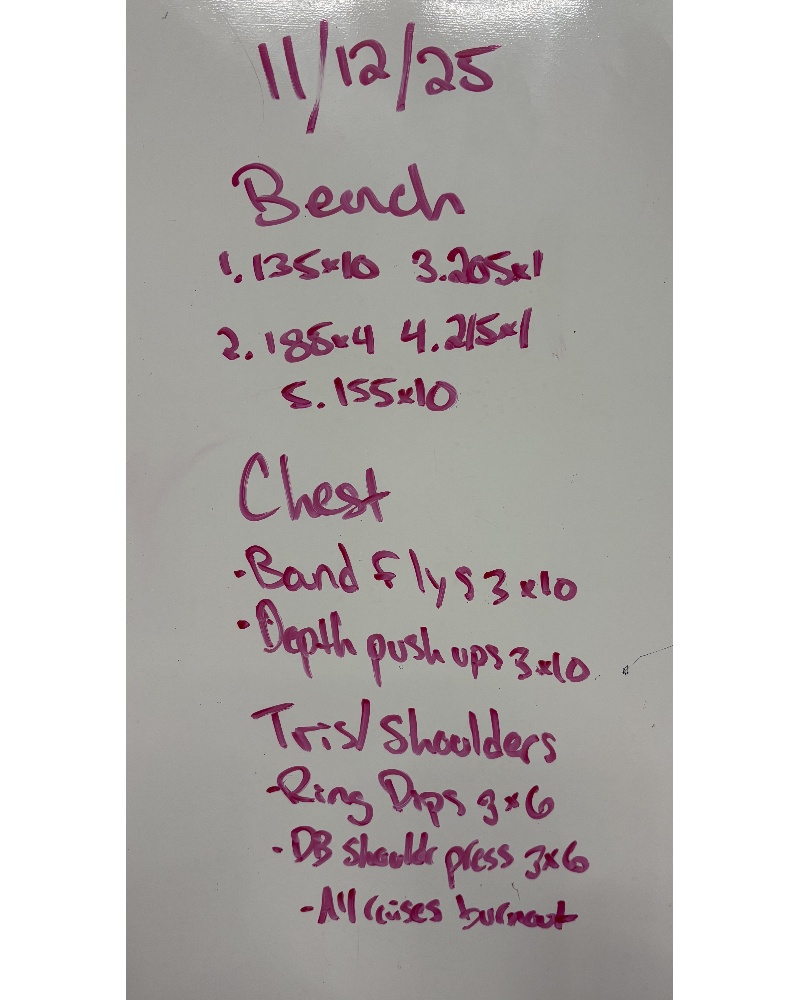 11/12/25
Bench
1. 135x10 3. 205x1
2. 185x4 4. 215x1
5. 155x10
Chest
- Band flys 3x10
- Depth push ups 3x10
Tris/Shoulders
- Ring Dips 3x6
- DB Shouldr press 3x6
- All raises burnout